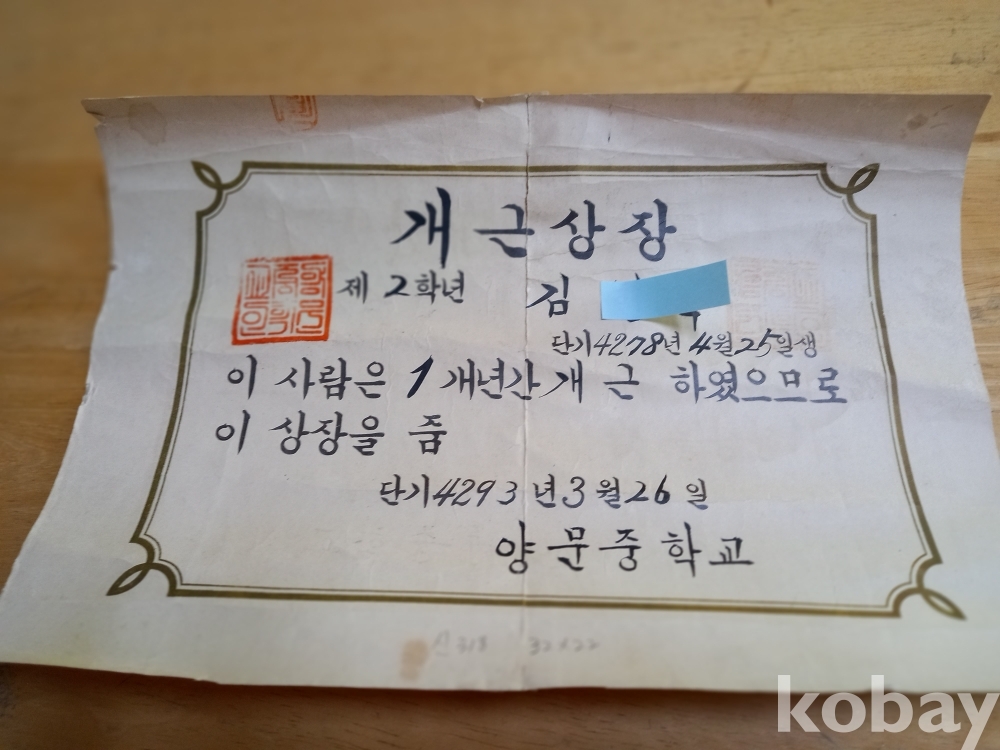 개근상장
제 2학년 김
단기4278년 4월25일생
이 사람은 1개년간개근 하였으므로
이 상장을 줌
단기4293년3월26일
양문중학교
32×22
kobay